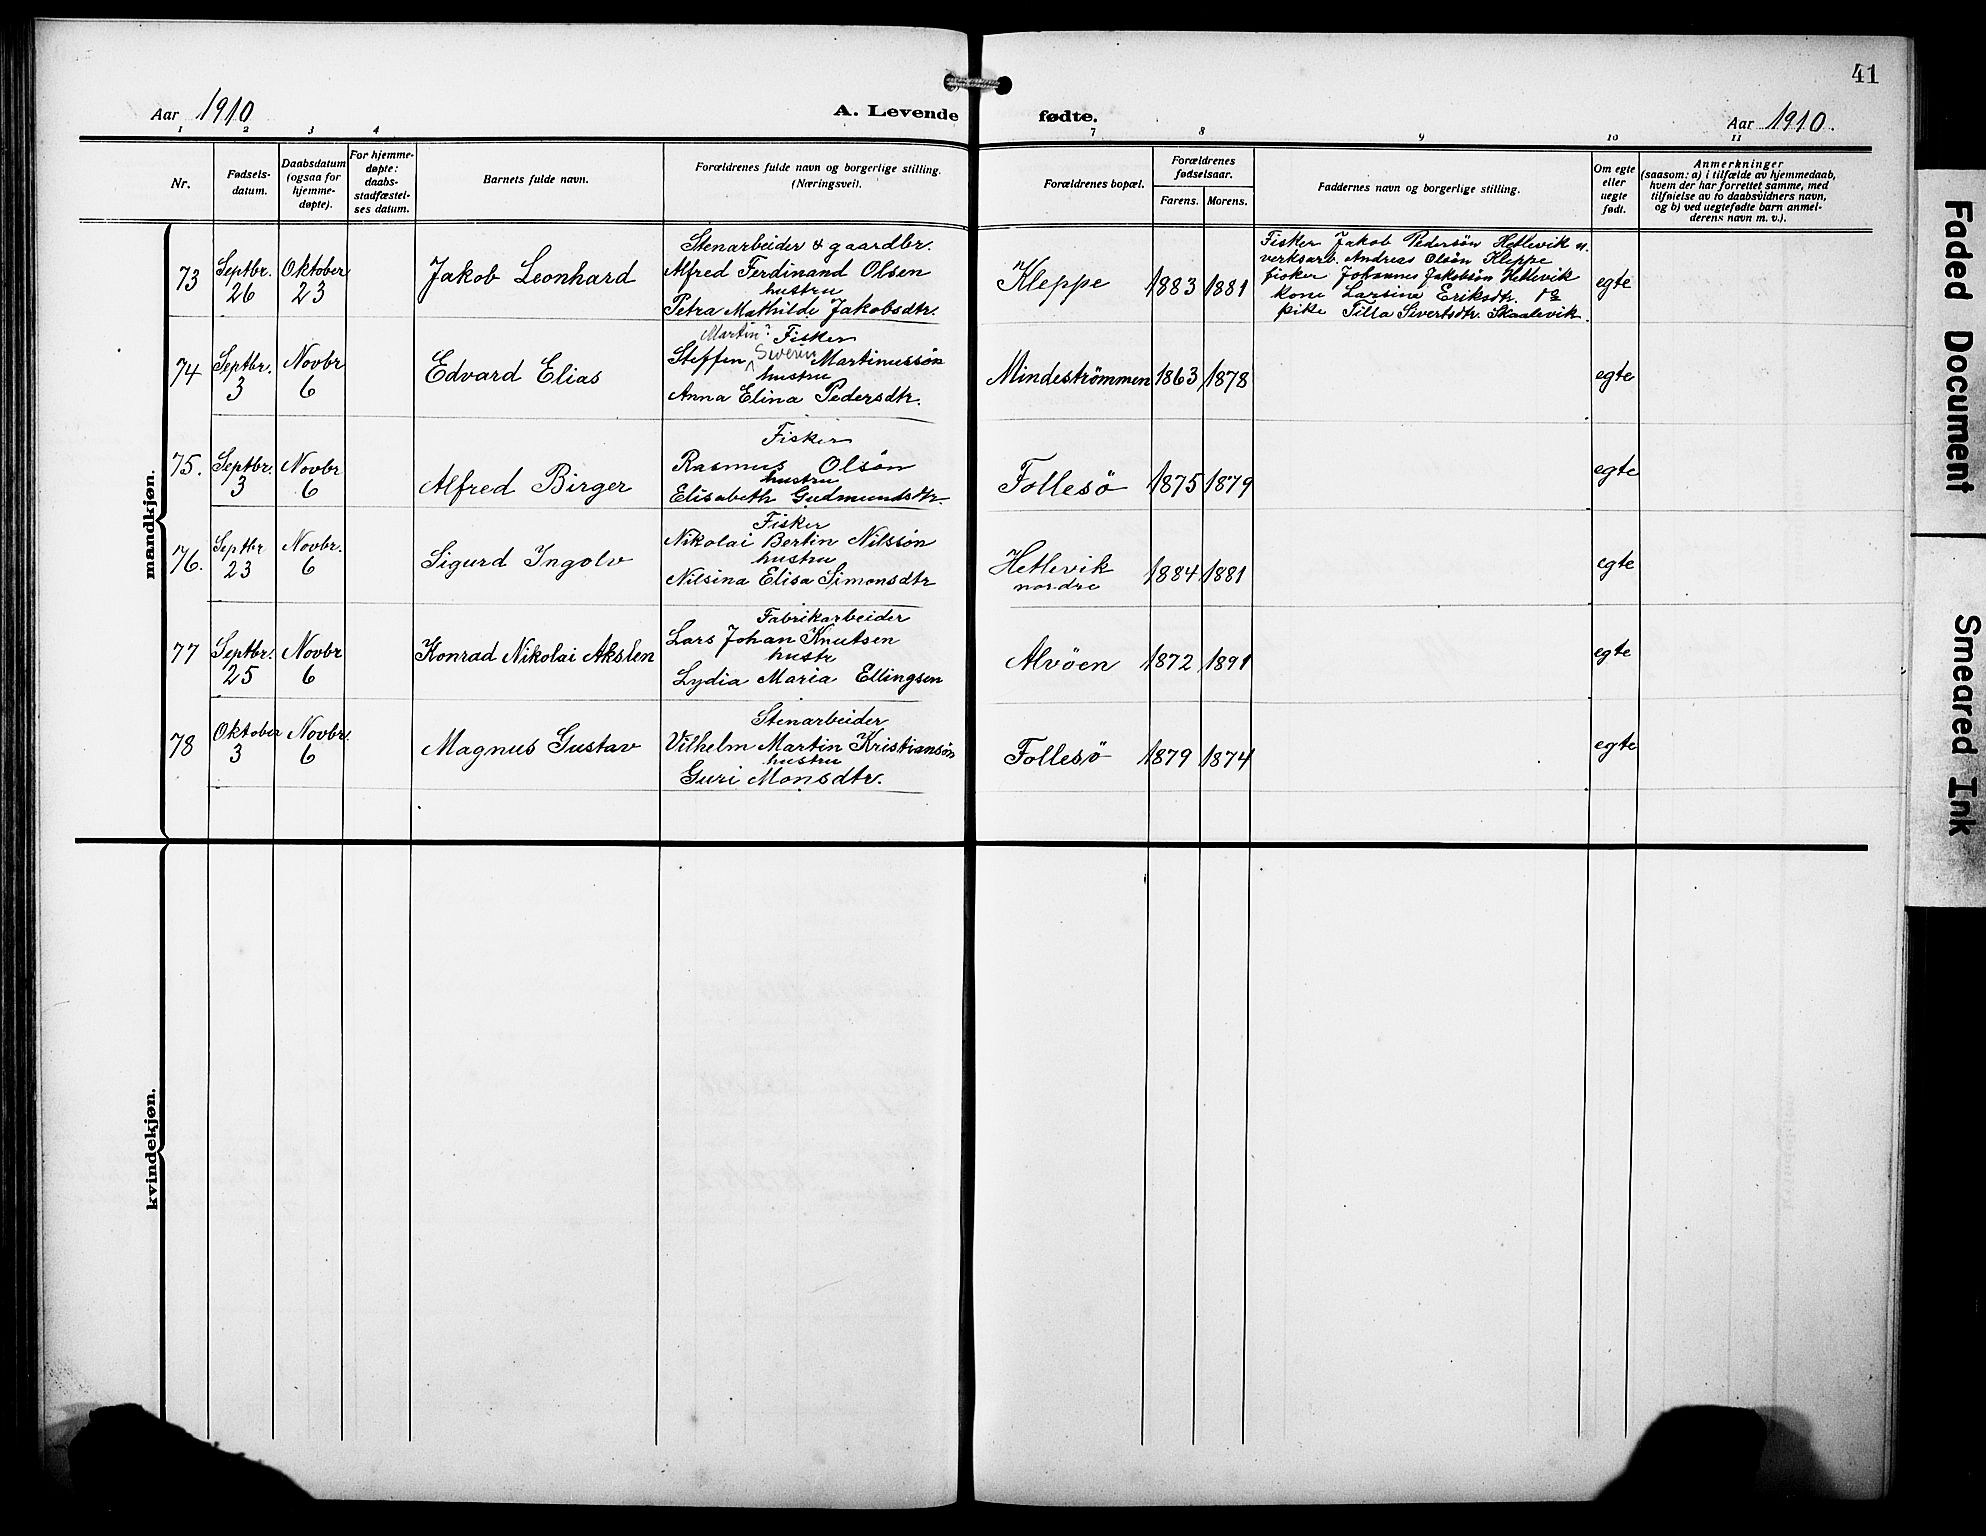 41
Aar 1910
A. Levende fødte.
Aar 1910.
1 2 3 4 7 8 9 10 11
Nr.
Fødsels-
datum.
Daabsdatum
(ogsaa for
hjemme-
døpte).
For hjemme-
døpte:
daabs-
stadfæstel-
ses datum.
Barnets fulde navn.
Forældrenes fulde navn og borgerlige stilling.
(Næringsvei).
Forældrenes bopæl.
Forældrenes
fødselsaar.
Farens. Morens.
Faddernes navn og borgerlige stilling.
Om egte
eller
uegte
født.
Anmerkninger
(saasom: a) i tilfælde av hjemmedaab,
hvem der har forrettet samme, med
tilføielse av to daabsvidners navn,
og b) ved uegtefødte barn anmel-
derens navn m. v.).
mandkjøn.
73
Septbr.
26
Oktober
23
Jakob Leonhard
Stenarbeider & gaardbr.
Alfred Ferdinand Olsen
hustru
Petra Mathilde Jakobsdtr.
Kleppe
1883 1881
Fisker Jakob Pedersön Hetlevik
verksarb. Andreas Olsön Kleppe
fisker Johannes Jakobsön Hetlevik
kone Larsine Eriksdtr.
pike Tilla Sivertsdtr. Skaalevik
egte
74
Septbr.
3
Novbr
6
Edvard Elias
Martin: Fisker
Steffen Severin Martinussön
hustru
Anna Elina Pedersdtr.
Mindeströmmen
1863 1878
egte
75.
Septbr.
3
Novbr
6
Alfred Birger
Fisker
Rasmus Olsön
hustru
Elisabeth Gudmundsdtr.
Follesö
1875 1879
egte
76.
Septbr
23
Novbr.
6
Sigurd Ingolv
Fisker
Nikolai Bertin Nilssön
hustru
Nilsina Elisa Simonsdtr
Hetlevik
nordre
1884 1881
egte
77
Septbr.
25
Novbr
6
Konrad Nikolai Akslen
Fabrikarbeider
Lars Johan Knutsen
hustr
Lydia Maria Ellingsen
Alvöen
1872 1891
egte
78
Oktober
3
Novbr.
6
Magnus Gustav
Stenarbeider
Vilhelm Martin Kristiansön
hustru
Guri Monsdtr.
Follesö
1879 1874
egte
kvindekjøn.
Faded Document
Smeared Ink